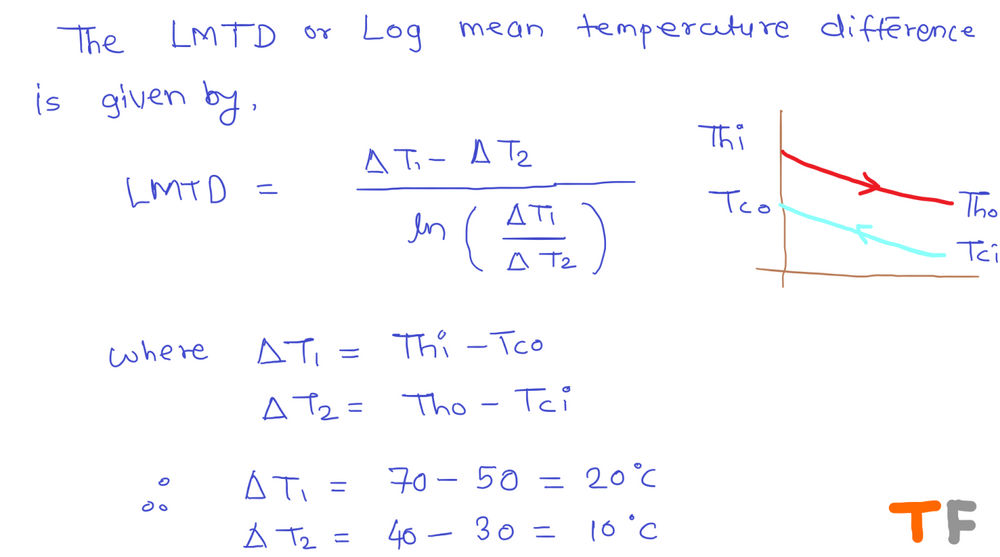 The LMTD or Log mean temperature difference
is given by,
LMTD = ΔT₁ - ΔT₂ / ln (ΔT₁ / ΔT₂)
Thi
Tco
Tho
Tci
where ΔT₁ = Thi - Tco
ΔT₂ = Tho - Tci
∴ ΔT₁ = 70 - 50 = 20°C
ΔT₂ = 40 - 30 = 10°C
TF